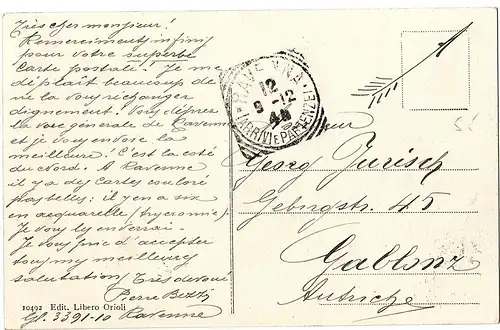 Très cher monsieur!
Remerciments infinis
pour votre superbe
carte postale! Je me
déplait beaucoup de
ne la vous rechanger
dignement! Vous désirez
la vue générale de Ravenne
et je vous envoie la
meilleure! C'est la coté
du Nord. A Ravenne
il y a des cartes couloré
pastelles: il y en a six
en acquarelle (tricromie).
Je vous ly enverrai.
Je vous prie d'accepter
tous mes meilleurs
salutations/ Très devoué
Pierre Bezzi
10492 Edit. Libero Orioli
Gl. 3391-10 Ravenne
RAVENNA
12
9-12
(ARRIVI E PARTENZE)
Georg Jurisch
Gebirgstr. 45
Gablonz
Autriche